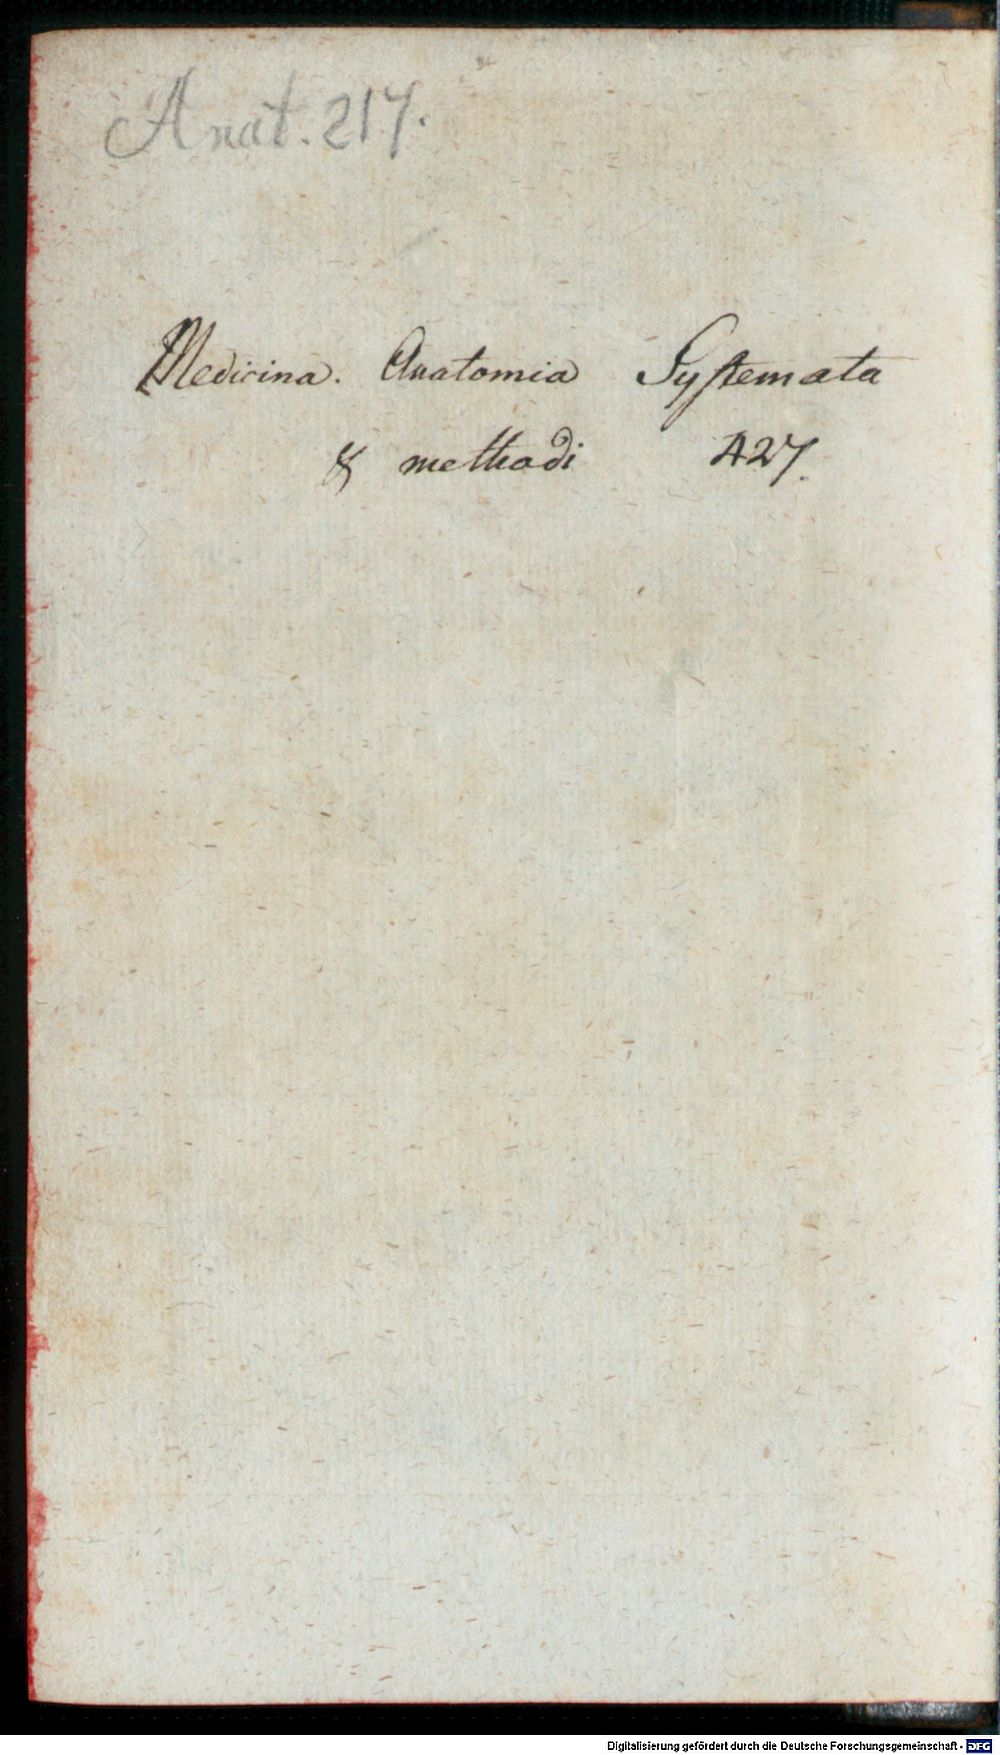 Anat. 217.
Medicina. Anatomia Systemata
& methodi 427.
Digitalisierung gefördert durch die Deutsche Forschungsgemeinschaft - DFG